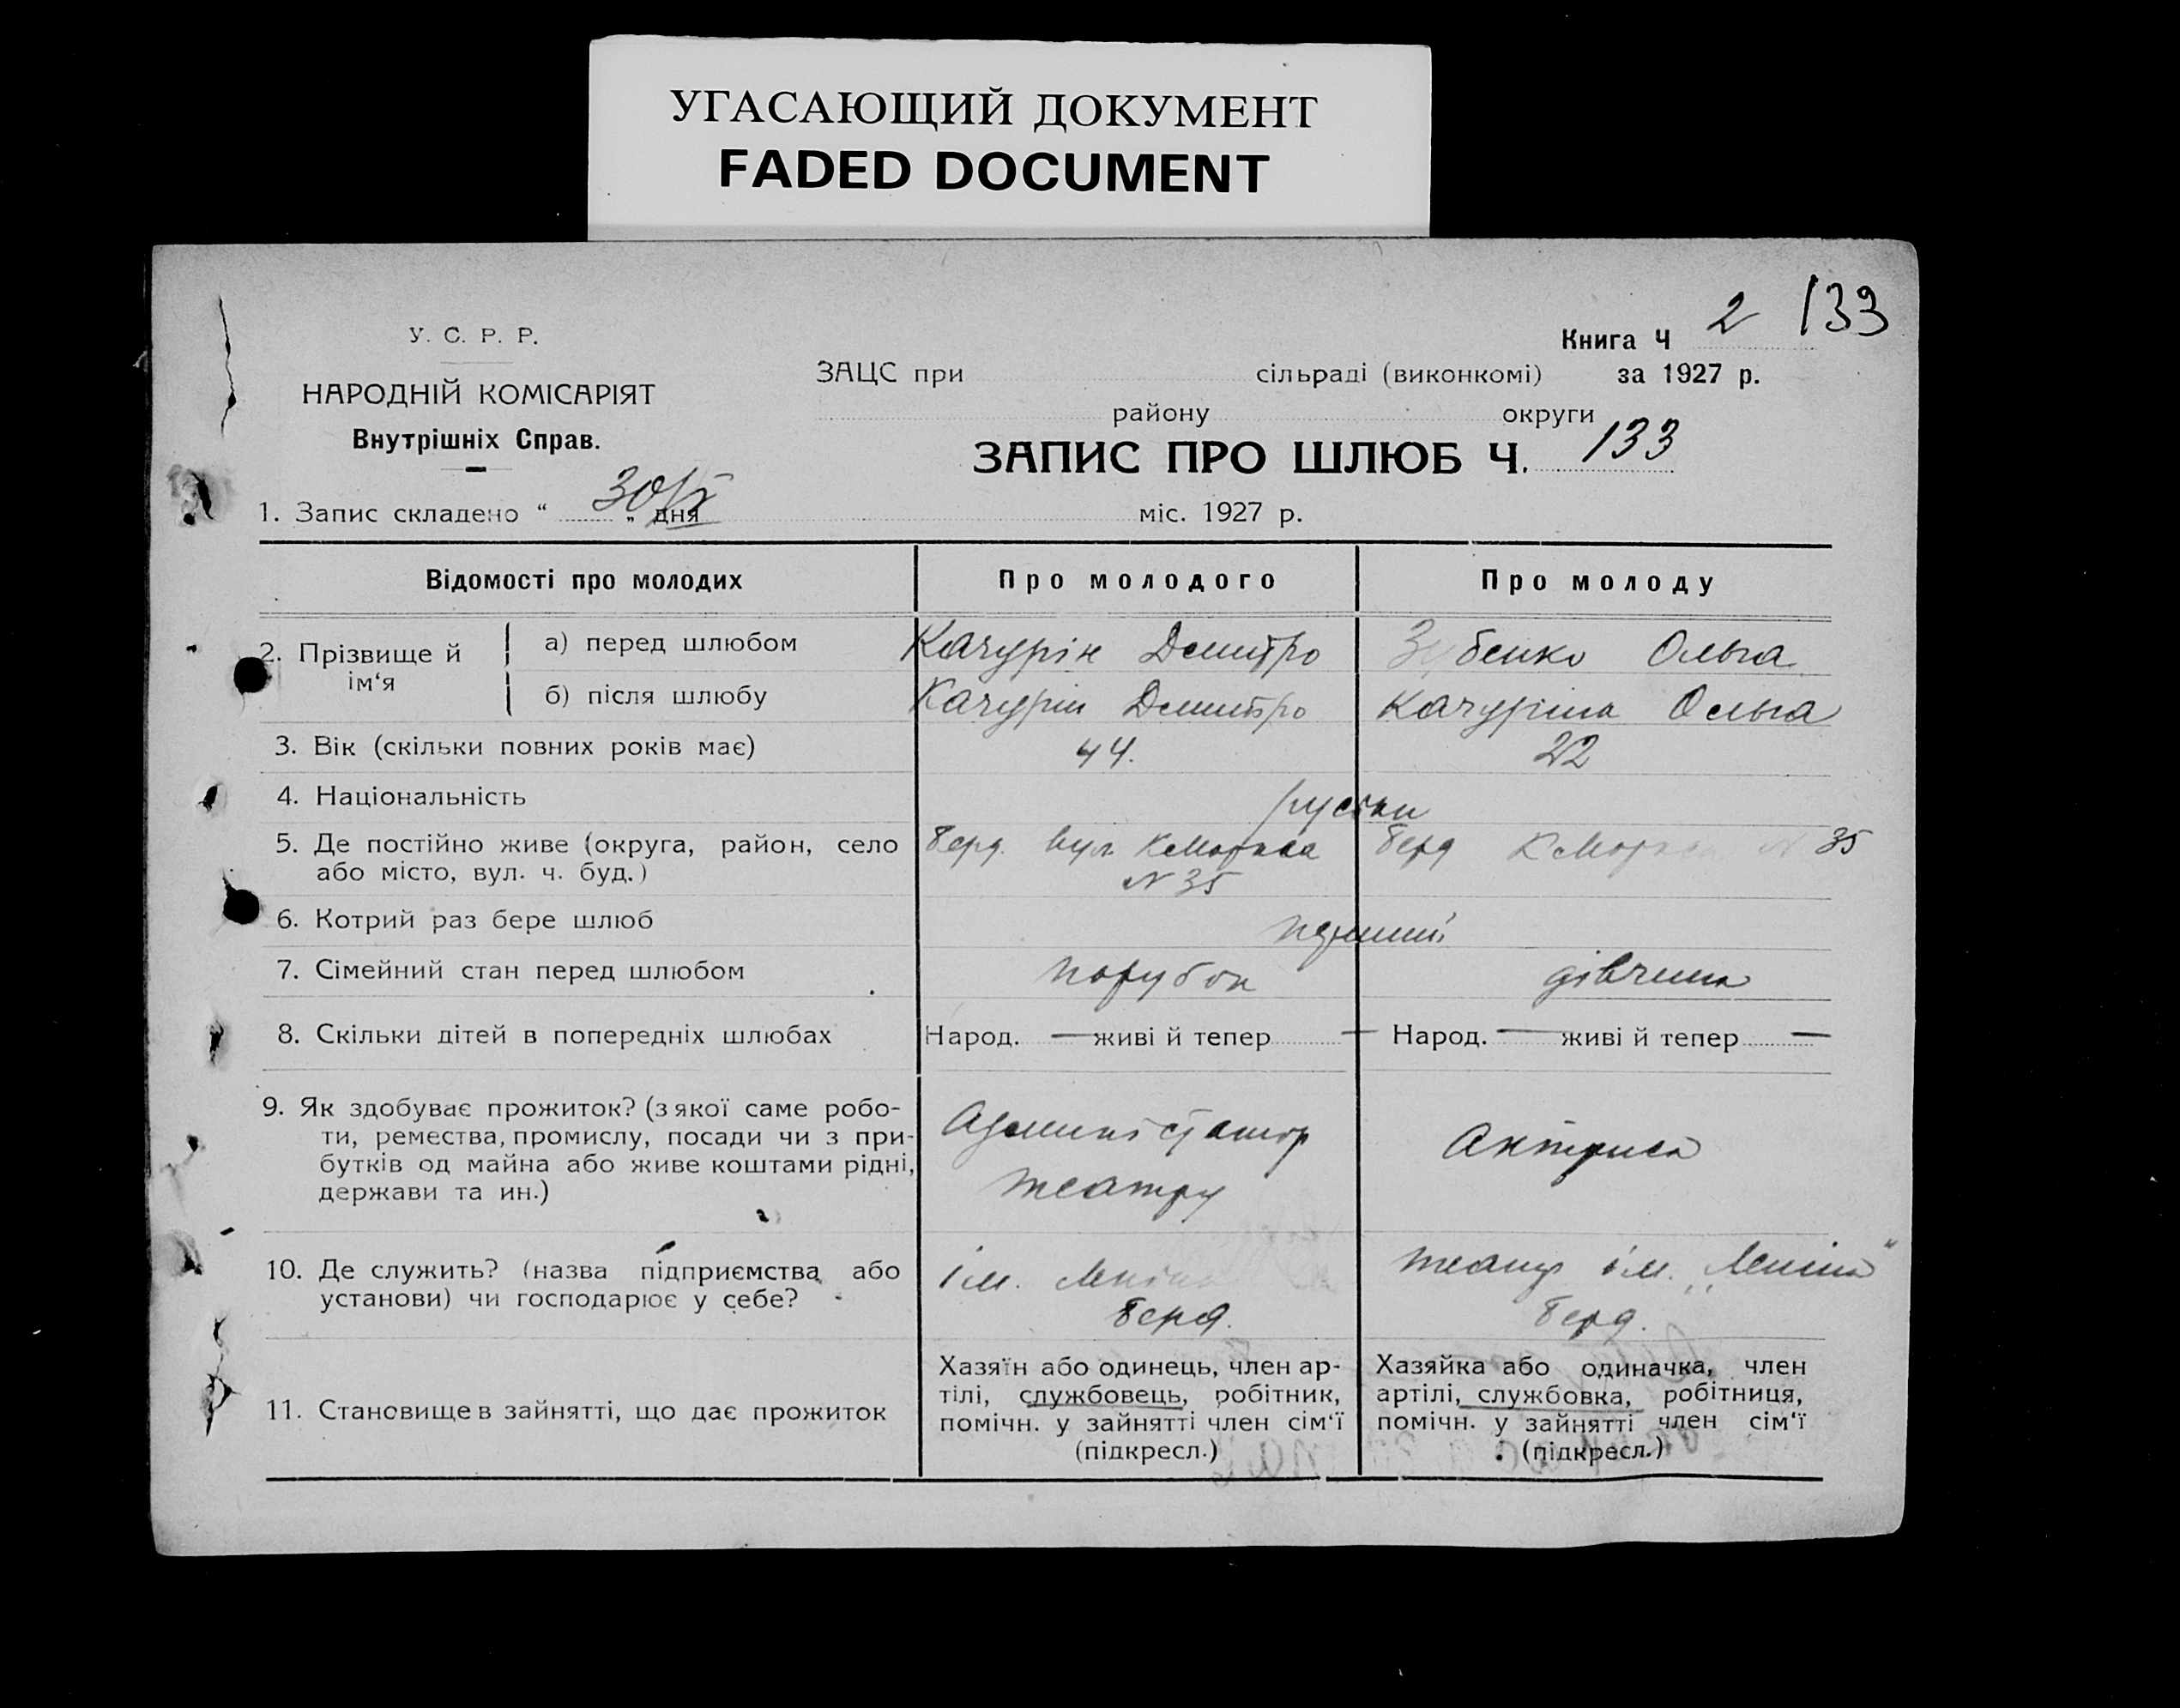 УГАСАЮЩИЙ ДОКУМЕНТ
FADED DOCUMENT
2 133
У. С. Р. Р.
Книга Ч
НАРОДНІЙ КОМІСАРІЯТ
Внутрішніх Справ.
ЗАЦС при сільраді (виконкомі) за 1927 р.
району округи
ЗАПИС ПРО ШЛЮБ Ч. 133
1. Запис складено “ 30/IX „ дня міс. 1927 р.
Відомості про молодих Про молодого Про молоду
2. Прізвище й ім‘я
а) перед шлюбом Качурін Дмитро Зубенко Ольга
б) після шлюбу Качурін Дмитро Качуріна Ольга
3. Вік (скільки повних років має) 44. 22
4. Національність руськи
5. Де постійно живе (округа, район, село Берд. вул. К Маркса Берд К Маркса № 35
або місто, вул. ч. буд.) № 35
6. Котрий раз бере шлюб перший
7. Сімейний стан перед шлюбом парубок дівчина
8. Скільки дітей в попередніх шлюбах Народ. — живі й тепер — Народ. — живі й тепер —
9. Як здобуває прожиток? (з якої саме робо-
ти, ремества, промислу, посади чи з при-
бутків од майна або живе коштами рідні,
держави та ин.)
Адміністратор
театру
Актриса
10. Де служить? (назва підприємства або
установи) чи господарює у себе?
ім. Леніна
Берд.
театр ім. „Леніна“
Берд.
11. Становище в зайнятті, що дає прожиток
Хазяїн або одинець, член ар-
тілі, службовець, робітник,
помічн. у зайнятті член сім‘ї
(підкресл.)
Хазяйка або одиначка, член
артілі, службовка, робітниця,
помічн. у зайнятті член сім‘ї
(підкресл.)